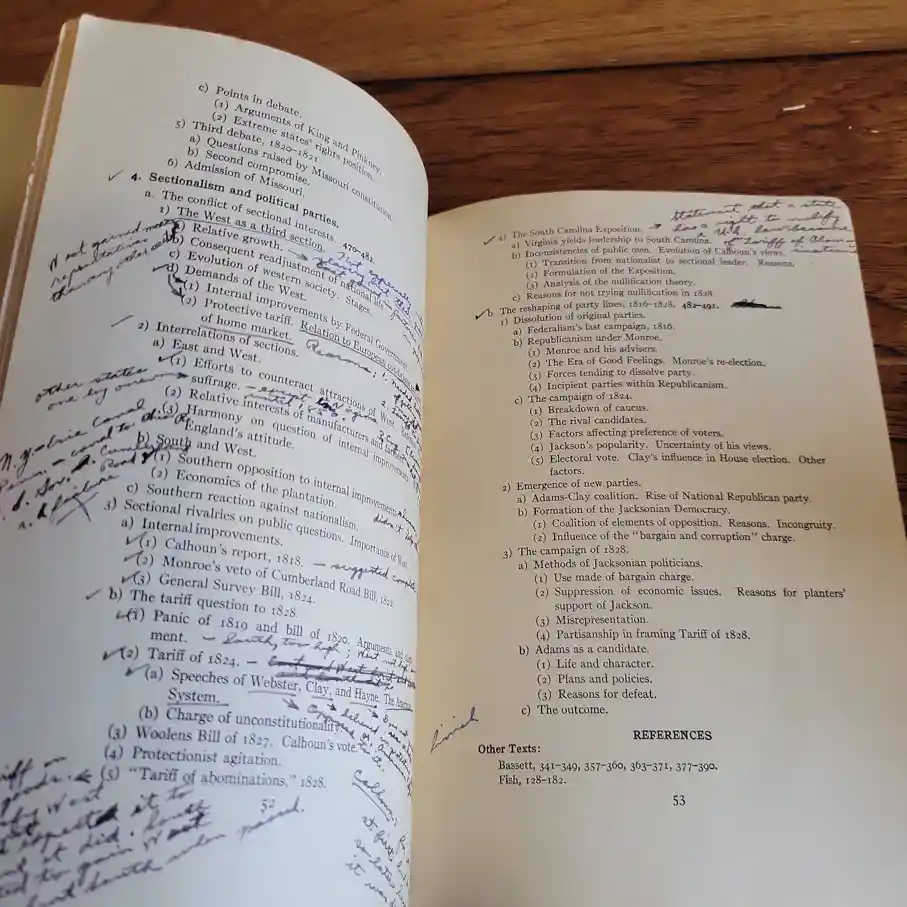 c) Points in debate.
(1) Arguments of King and Pinkney.
(2) Extreme states' rights position.
5) Third debate, 1820–1821.
a) Questions raised by Missouri constitution.
b) Second compromise.
6) Admission of Missouri.
✓ 4. Sectionalism and political parties.
a. The conflict of sectional interests. 470–482
1) The West as a third section.
West gained more
representatives
than any other
a) Relative growth.
b) Consequent readjustment of national
c) Evolution of western society. Stages.
d) Demands of the West.
(1) Internal improvements by Federal Government.
(2) Protective tariff. Relation to European
of home market. Reasons; 1.
2) Interrelations of sections.
a) East and West.
(1) Efforts to counteract attractions of West
suffrage. — except Virginia
other states
one by one
(2) Relative interests of manufacturers and
(3) Harmony on question of internal improvements
England's attitude.
b) South and West.
(1) Southern opposition to internal improvements
(2) Economics of the plantation.
c) Southern reaction against nationalism.
N.Y. Erie Canal
Penn. — canal to
3) Sectional rivalries on public questions. Importance of West.
a) Internal improvements.
(1) Calhoun's report, 1818.
(2) Monroe's veto of Cumberland Road Bill, 1822
(3) General Survey Bill, 1824.
— suggested complete
b) The tariff question to 1828.
(1) Panic of 1819 and bill of 1820. Arguments and
ment. — South, too high; West not high
(2) Tariff of 1824. —
(a) Speeches of Webster, Clay, and Hayne. The American
System.
(b) Charge of unconstitutionality.
(3) Woolens Bill of 1827. Calhoun's vote.
(4) Protectionist agitation.
(5) "Tariff of abominations," 1828.
52
Calhoun;
at first,
it was
Statement that a state
has a right to nullify
a U.S. law because
of Tariff of Abom-
inations
✓ 4) The South Carolina Exposition.
a) Virginia yields leadership to South Carolina.
b) Inconsistencies of public men. Evolution of Calhoun's views.
(1) Transition from nationalist to sectional leader. Reasons.
(2) Formulation of the Exposition.
(3) Analysis of the nullification theory.
c) Reasons for not trying nullification in 1828.
✓ b. The reshaping of party lines, 1816–1828. 482–491.
1) Dissolution of original parties.
a) Federalism's last campaign, 1816.
b) Republicanism under Monroe.
(1) Monroe and his advisers.
(2) The Era of Good Feelings. Monroe's re-election.
(3) Forces tending to dissolve party.
(4) Incipient parties within Republicanism.
c) The campaign of 1824.
(1) Breakdown of caucus.
(2) The rival candidates.
(3) Factors affecting preference of voters.
(4) Jackson's popularity. Uncertainty of his views.
(5) Electoral vote. Clay's influence in House election. Other
factors.
2) Emergence of new parties.
a) Adams-Clay coalition. Rise of National Republican party.
b) Formation of the Jacksonian Democracy.
(1) Coalition of elements of opposition. Reasons. Incongruity.
(2) Influence of the "bargain and corruption" charge.
3) The campaign of 1828.
a) Methods of Jacksonian politicians.
(1) Use made of bargain charge.
(2) Suppression of economic issues. Reasons for planters'
support of Jackson.
(3) Misrepresentation.
(4) Partisanship in framing Tariff of 1828.
b) Adams as a candidate.
(1) Life and character.
(2) Plans and policies.
(3) Reasons for defeat.
c) The outcome.
REFERENCES
Other Texts:
Bassett, 341–349, 357–360, 363–371, 377–390.
Fish, 128–182.
53